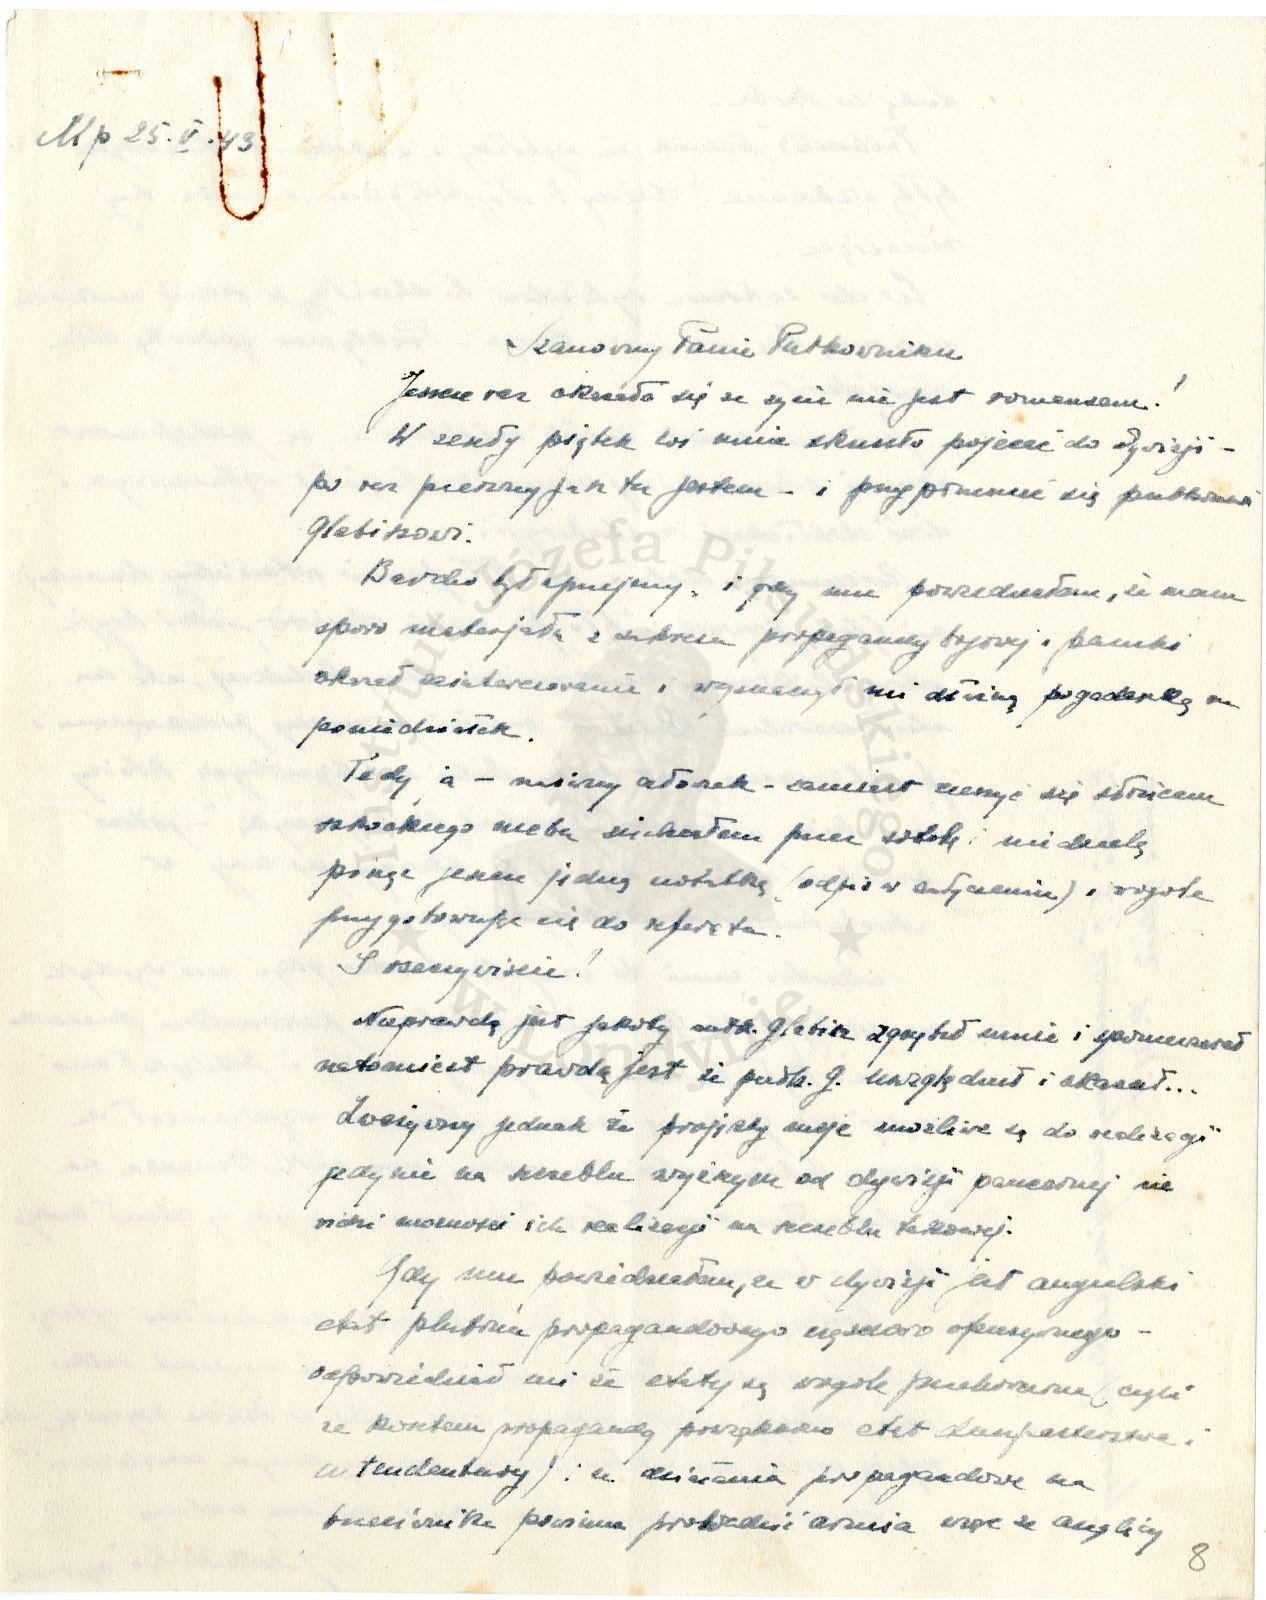 Mp 25.V.43
Szanowny Panie Pułkowniku
Jeszcze raz okazało się że życie nie jest romansem!
W zeszły piątek coś mnie skusiło pojechać do Dywizji –
po raz pierwszy jak tu jestem – i przypomnieć się pułkownikowi
Glabiszowi.
Bardzo był uprzejmy, i gdy mu powiedziałem, że mam
sporo materjału z zakresu propagandy bojowej i paniki
okazał zainteresowanie i wyznaczył mi dłuższą pogadankę na
poniedziałek.
Tedy ja – naiwny człowiek – zamiast cieszyć się słońcem
szkockiego nieba siedziałem przez sobotę i niedzielę
pisząc jeszcze jedną notatkę (odpis w załączeniu) i wogóle
przygotowując się do referatu.
I rzeczywiście!
Nieprawdą jest jakoby płk. Glabisz zgnębił mnie i sponiewierał
natomiast prawdą jest że pułk. G. uwzględnił i okazał...
Zważywszy jednak że projekty moje możliwe są do realizacji
jedynie na szczeblu wyższym od dywizji pancernej nie
widzi możności ich realizacji na szczeblu takowej.
Gdy mu powiedziałem, że w dywizji jest angielski
etat plutonu propagandowego czysto ofensywnego –
odpowiedział mi że etaty są wogóle przekroczone (czyli
że kosztem propagandy powiększono etat duszpasterstwa i
intendentury) i że działania propagandowe na
przeciwnika powinna prowadzić armia więc że anglicy
8
Instytut Józefa Piłsudskiego
w Londynie